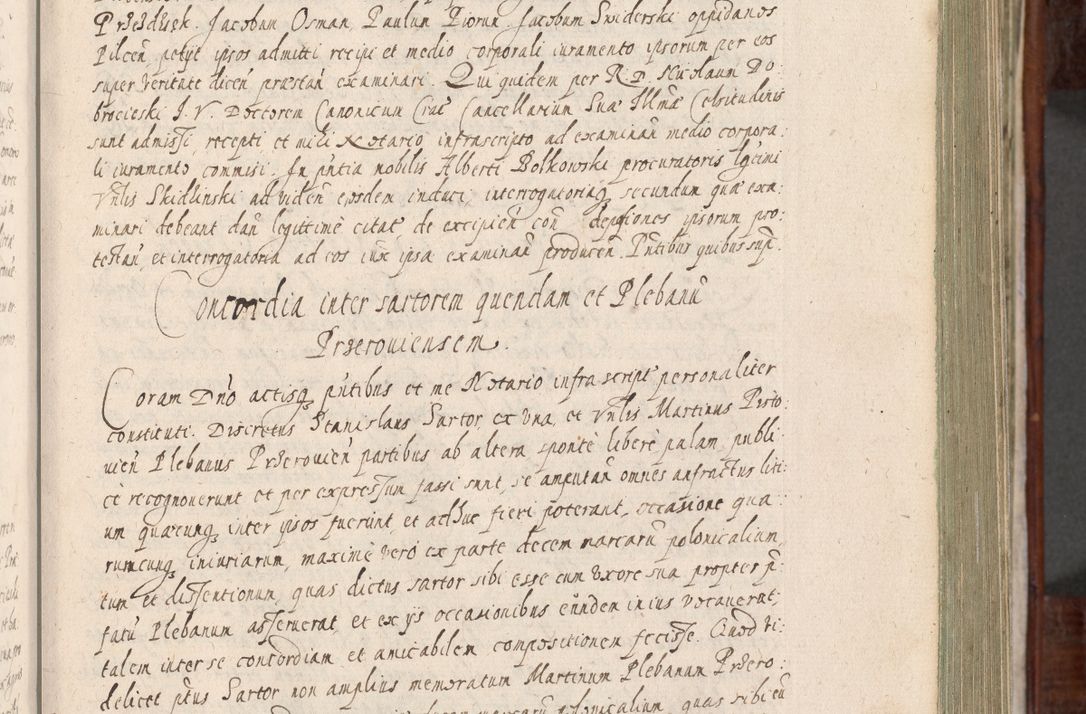 Przezdziek. Jacobum Osman, Paulum Piorun. Jacobum Swiderski oppidanos
Pilcen̄, petyt ipsos admitti recipi et medio corporali iuramento ipsorum per eos
super veritate dicen̄ præstan̄ examinari. Qui quidem per R. D. Nicolaum Do:
brocieski J. V. Doctorem Canonicum Crac̄ Cancellarium Suæ Illmæ Celsitudinis
sunt admissi, recepti et mihi Notario infrascripto ad examinan̄ medio corpora:
li iuramento commissi. In pn̄tia nobilis Alberti Bolkowski procuratoris lgt̄imi
Vn̄lis Skidlinski ad viden̄ eosdem induci, interrogatoriaq, secundum quæ exa:
minari debeant dan̄ legittimè citat̄, de excipien̄ con̄ depōnes ipsorum pro:
testan̄, et interrogatoria ad eos iux̄ ipsa examinan̄ producen̄. Pn̄tibus quibus sup̄.
Concordia inter sartorem quendam et Plebanū
Przerouiensem.
Coram Dn̄o actisq, pn̄tibus et me Notario infrascript̄ personaliter
constituti. Discretus Stanislaus Sartor, ex una, et Vn̄lis Martinus Przero:
uien̄ Plebanus Przerouien̄ partibus ab altera sponte liberè palam, publi:
cè recognouerunt et per expressum fassi sunt, se amputan̄ omnes anfractus liti:
um quæcunq, inter ipsos fuerunt et adhuc fieri poterant, occasione qua:
rumcunq, iniuriarum, maximè verò ex parte decem marcarū polonicalium,
tum et dissentionum, quas dictus sartor sibi esse cum uxore sua propter p̄:
fatū Plebanum asseruerat, et ex ijs occasionibus eūndem in ius vocauerat,
talem inter se concordiam et amicabilem compositionem fecisse. Quod vi:
delicet p̄tus Sartor non amplius memoratum Martinum Plebanum Przero:
marcarū polonicalium, quas sibi cū